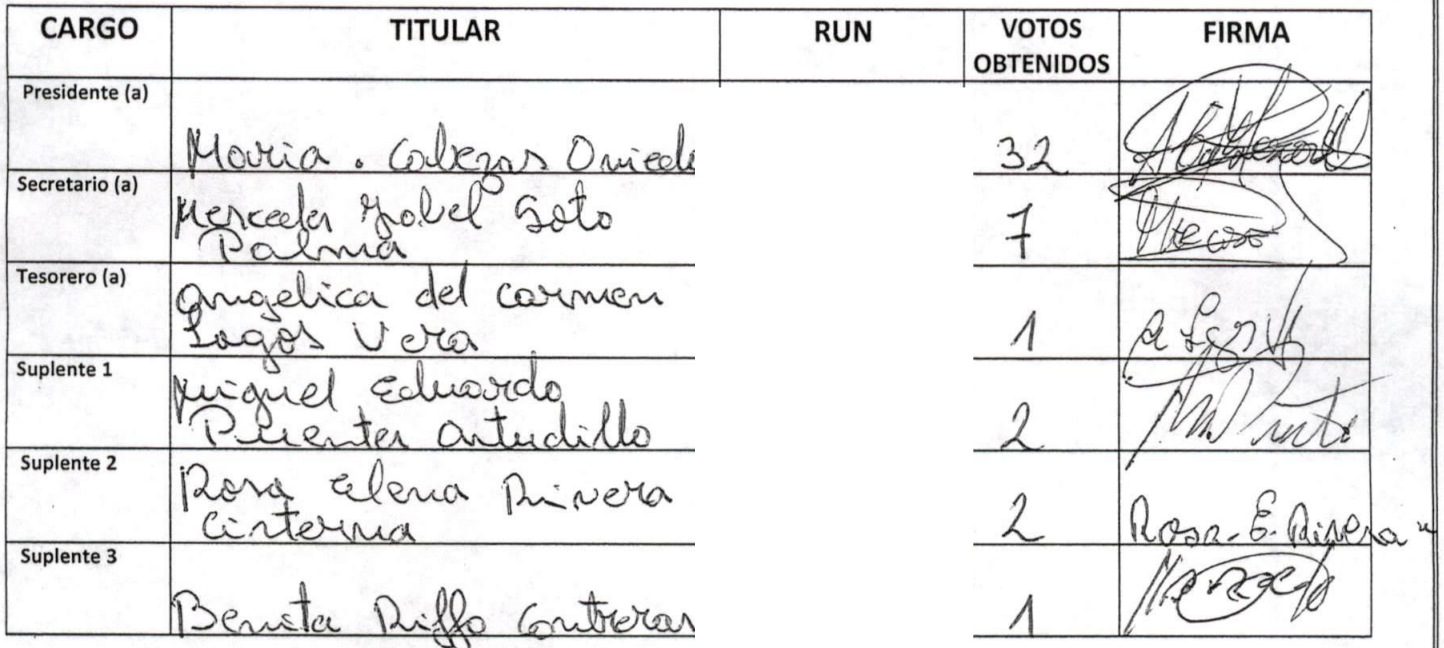 CARGO TITULAR RUN VOTOS OBTENIDOS FIRMA
Presidente (a)
Maria . Cabezas Oviedo 32
Secretario (a)
Mercedes Isabel Soto
Palma 7
Tesorero (a)
Angelica del carmen
Lagos Vera 1
Suplente 1
Miguel Eduardo
Puentes Astudillo 2
Suplente 2
Rosa Elena Rivera
Cisterna 2 Rosa-E-Rivera
Suplente 3
Benita Riffo Contreras 1